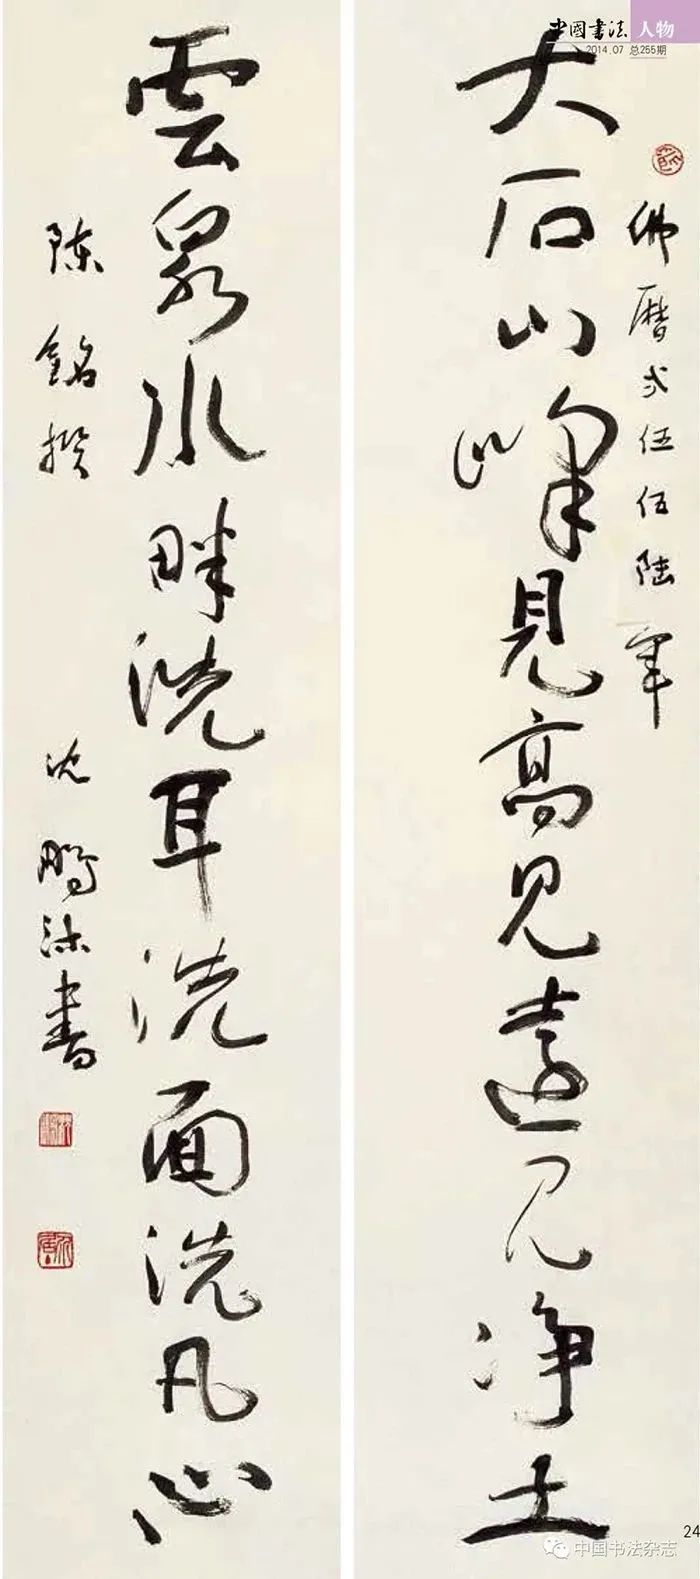 中国书法 人物
2014.07 总255期
佛曆弍伍伍陆年
大石山峰見高見遠見净土
雲泉水畔洗耳洗面洗凡心
陈铭撰
沈鹏沐書
24
中国书法杂志